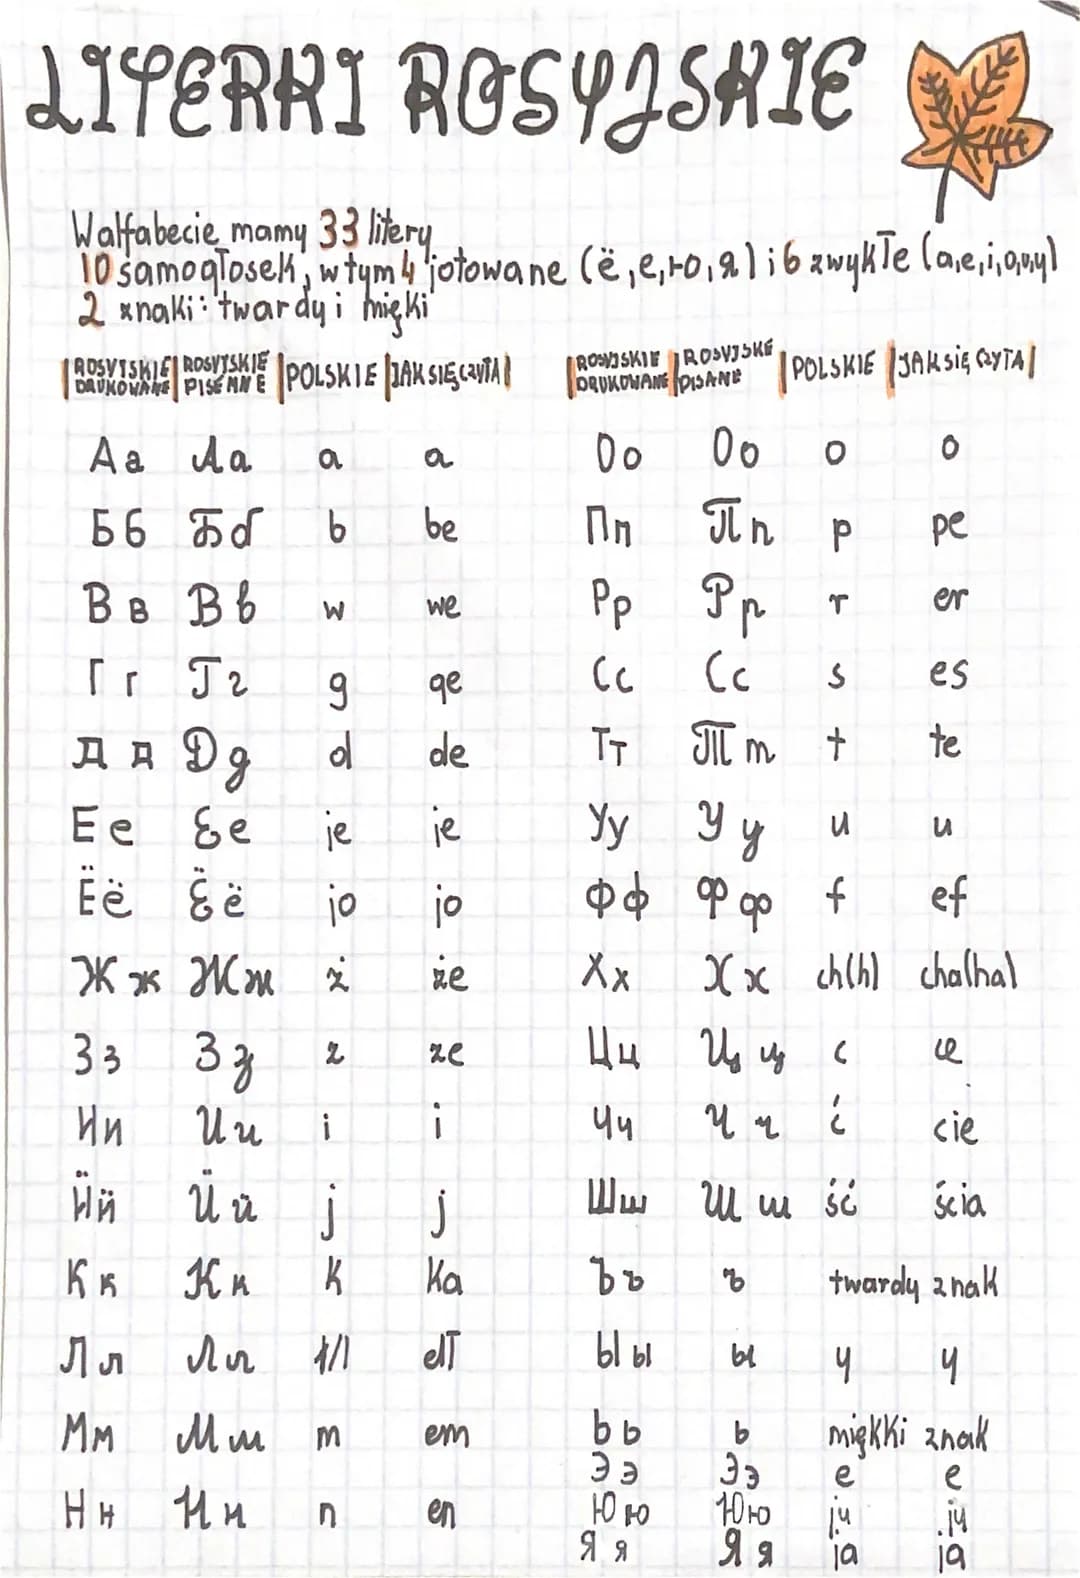 LITERKI ROSYJSKIE
W alfabecie mamy 33 litery
10 samogłosek, w tym 4 jotowane (ë, e, ю, я) i 6 zwykłe (a,e,i,o,u,y)
2 znaki: twardy i miękki
ROSYJSKIE DRUKOWANE | ROSYJSKIE PISEMNE | POLSKIE | JAK SIĘ CZYTA | ROSYJSKIE DRUKOWANE | ROSYJSKIE PISANE | POLSKIE | JAK SIĘ CZYTA
Аа Аа a a Оо Оо o o
Бб Бб b be Пп Пп p pe
Вв Вв w we Рр Рр r er
Гг Гг g ge Сс Сс s es
Дд Дд d de Тт Тт t te
Ее Ее je je Уу Уу u u
Ёё Ёё jo jo Фф Фф f ef
Жж Жж ż że Хх Хх ch(h) cha(ha)
Зз Зз z ze Цц Цц c ce
Ии Ии i i Чч Чч ć cie
Йй Йй j j Шш Шш ść ścia
Кк Кк k ka Ъъ ъ twardy znak
Лл Лл ł/l elł Ыы ы y y
Мм Мм m em Ьь ь miękki znak
Ээ Ээ e e
Нн Нн n en Юю Юю ju ju
Яя Яя ja ja